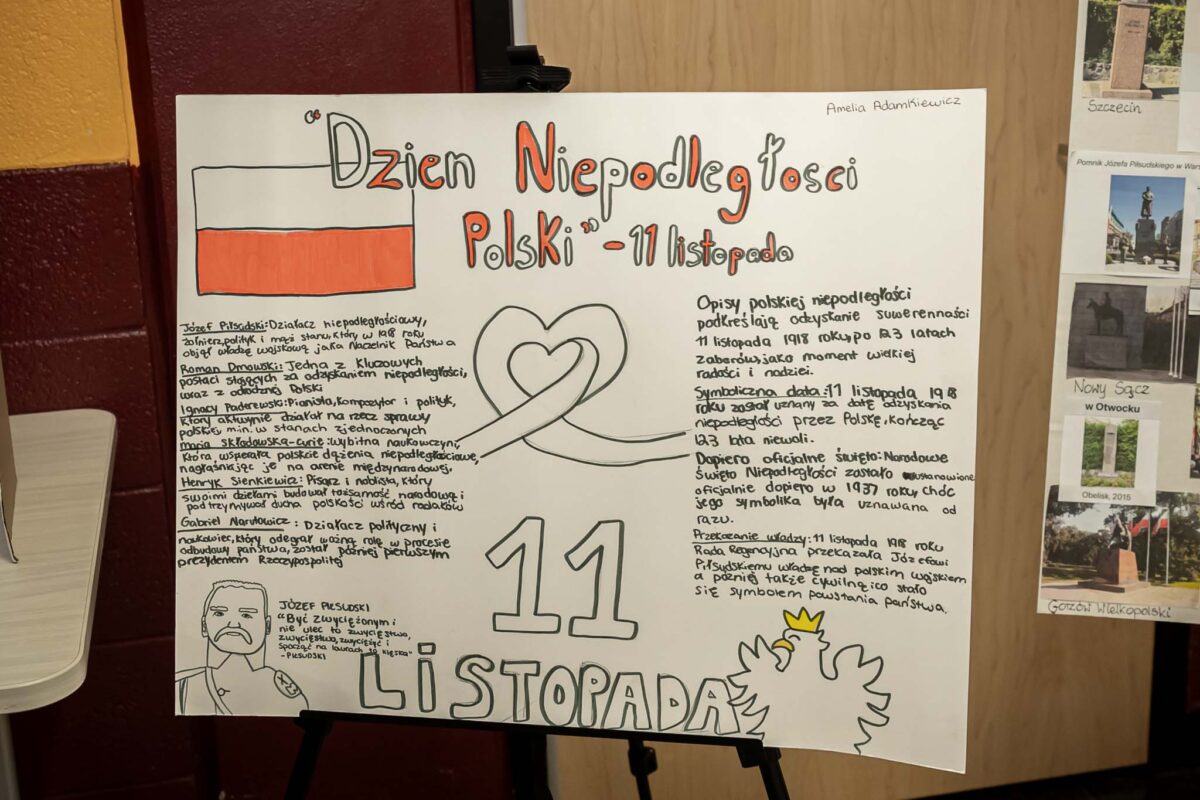 Amelia Adamkiewicz
"Dzien Niepodległosci
Polski" - 11 listopada
Józef Piłsudski: Działacz niepodległościowy,
żołnierz, polityk i mąż stanu, który w 1918 roku
objął władzę wojskową jako Naczelnik Państwa
Roman Dmowski: Jedna z kluczowych
postaci stojących za odzyskaniem niepodległości,
wraz z odrodzną Polski
Ignacy Paderewski: Pianista, kompozytor i polityk,
który aktywnie działał na rzecz sprawy
polskiej min. w stanach zjednoczonych
maria składowska-curie: wybitna naukowczyni,
która wsperała polskie dążenia niepodległościowe,
nagłaśniając je na arenie międzynarodowej.
Henryk Sienkiewicz: Pisarz i noblista, który
swoimi dziełami budował tożsamość narodową i
podtrzymywał ducha polskości wśród rodaków
Gabriel Narutowicz: Działacz polityczny i
naukowiec, który odegrał ważną rolę w procesie
odbudowy państwa, został później pierwszym
prezydentem Rzeczypospolitej
JÓZEF PIŁSUDSKI
"Być zwyciężonym i
nie ulec to zwycięstwo,
zwyciężyć i
spocząć na laurach to klęska"
-PIŁSUDSKI
Opisy polskiej niepodległości
podkreślają odzyskanie suwerenności
11 listopada 1918 roku, po 123 latach
zaborów, jako moment wielkiej
radości i nadziei.
Symboliczna data: 11 listopada 1918
roku został uznany za datę odzyskania
niepodległości przez Polskę, kończąc
123 lata niewoli.
Dopiero oficjalne święto: Narodowe
Święto Niepodległości zostało ustanowione
oficjalnie dopiero w 1937 roku, choć
jego symbolika była uznawana od
razu.
Przekazanie władzy: 11 listopada 1918 roku
Rada Regencyjna przekazała Józefowi
Piłsudskiemu władzę nad polskim wojskiem
a później także cywilną, co stało
się symbolem powstania państwa.
11
LISTOPADA
Szczecin
Pomnik Józefa Piłsudskiego w
Nowy Sącz
w Otwocku
Obelisk, 2015
Gorzów Wielkopolski